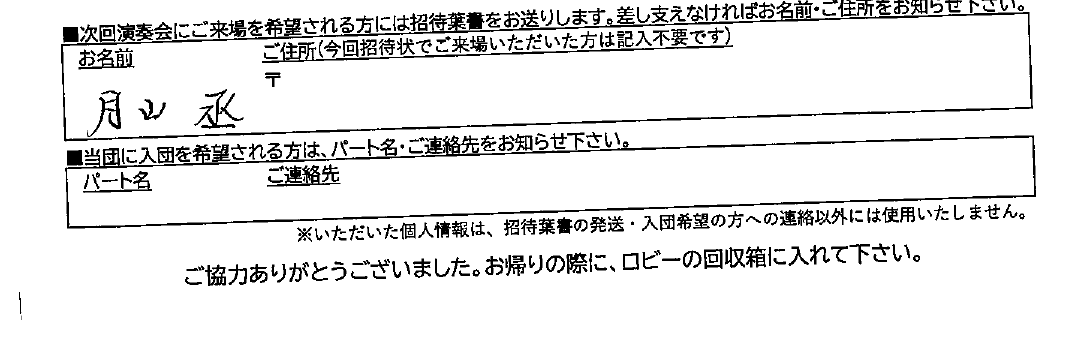 ■次回演奏会にご来場を希望される方には招待葉書をお送りします。差し支えなければお名前・ご住所をお知らせ下さい。
お名前 ご住所(今回招待状でご来場いただいた方は記入不要です)
〒
月山 丞
■当団に入団を希望される方は、パート名・ご連絡先をお知らせ下さい。
パート名 ご連絡先
※いただいた個人情報は、招待葉書の発送・入団希望の方への連絡以外には使用いたしません。
ご協力ありがとうございました。お帰りの際に、ロビーの回収箱に入れて下さい。